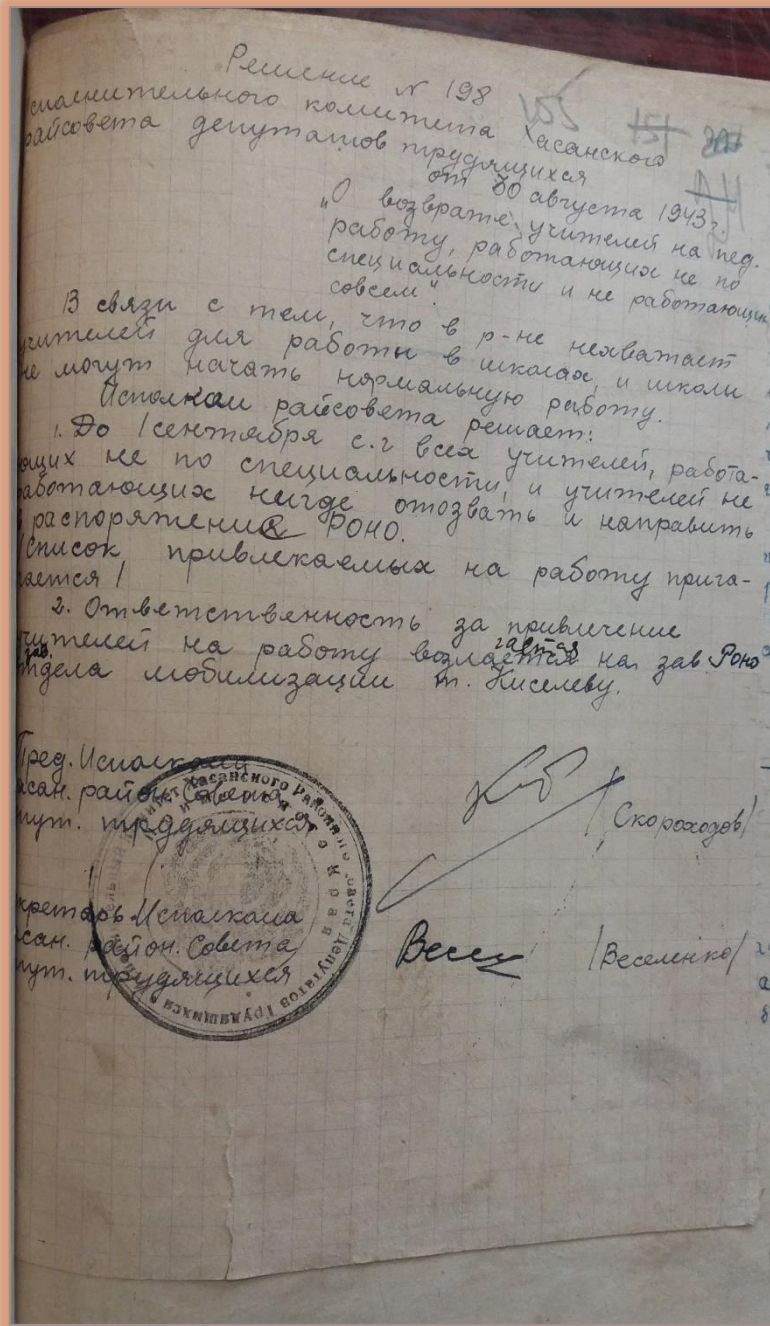 Решение № 198
сполнительного комитета Хасанского
райсовета депутатов трудящихся
от 30 августа 1943 г.
„О возврате учителей на пед.
работу, работающих не по
специальности и не работающих
совсем".
В связи с тем, что в р-не нехватает
учителей для работы в школах, и школы
не могут начать нормальную работу.
Исполком райсовета решает:
1. До 1 сентября с.г всех учителей, работа-
ющих не по специальности, и учителей не
работающих нигде отозвать и направить
в распоряжение РОНО.
/Список привлекаемых на работу прига-
гается/
2. Ответственность за привлечение
учителей на работу возлагается на зав. РОНО
зав.
тдела мобилизации т. Киселеву.
Пред. Исполкома
асан. район. Совета
пут. трудящихся
/Скороходов/
кретарь Исполкома
асан. район. Совета
пут. трудящихся
Весел
/Веселенко/
Хасанского Районного Совета Депутатов Трудящихся
Края